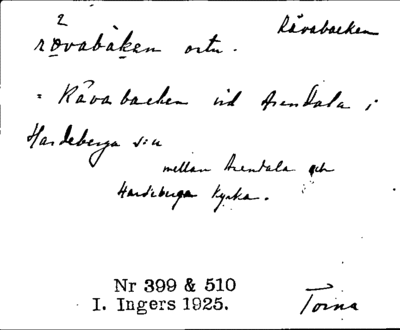 Råvabacken
2
rovabaken ortn.
= Råvabacken vid Arendala i
Hardeberga s:n
mellan Arendala och
Hardeberga Kyrka.
Nr 399 & 510
I. Ingers 1925.
Torna